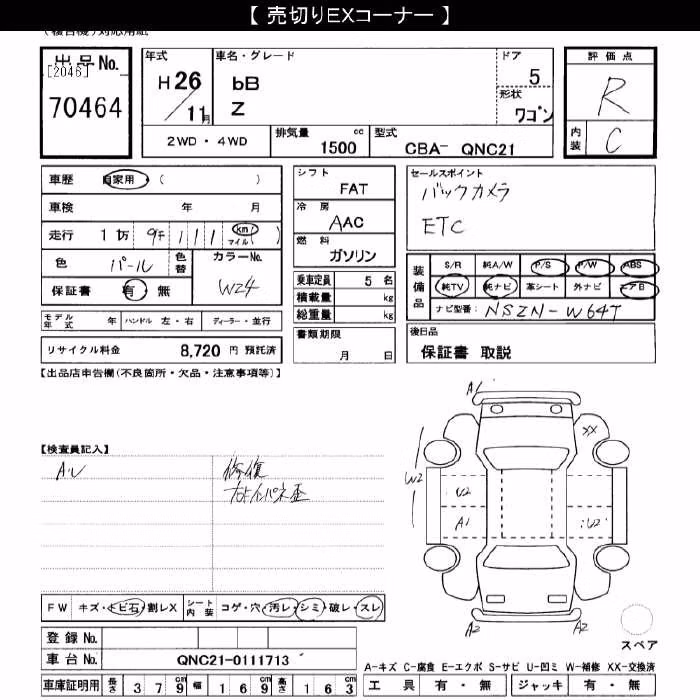 【 売切りEXコーナー 】
(複合機)対応用紙
出品No.
[2046]
70464
年式
H26
/11月
車名・グレード
bB
Z
ドア
5
形状
ワゴン
評価点
R
内装
C
2WD・4WD
排気量 cc
1500
型式
CBA- QNC21
車歴 自家用・( )
車検 年 月
走行 1万 9千 1 1 1 (km/マイル)( )
色 パール 色替
カラーNo.
W24
保証書 有・無
モデル年式 年 ハンドル 左・右 ディーラー・並行
リサイクル料金 8,720 円 預託済
シフト
FAT
冷房
AAC
燃料
ガソリン
乗車定員 5 名
積載量 kg
総重量 kg
書類期限
月 日
セールスポイント
バックカメラ
ETC
装備品
S/R 純A/W P/S P/W ABS
純TV 純ナビ 革シート 外ナビ エアB
ナビ型番: NSZN-W64T
後日品
保証書 取説
【出品店申告欄(不良箇所・欠品・注意事項等)】
【検査員記入】
A・U
修復
A1
XX
W2
U2
A1
U2
A2 A2
スペア
FW キズ・トビ石・割レX シート内装 コゲ・穴・汚レ・シミ・破レ・スレ
登録No.
車台No. QNC21-0111713
車庫証明用 長さ 3 7 9cm 幅 1 6 9cm 高さ 1 6 3cm
A-キズ C-腐食 E-エクボ S-サビ U-凹ミ W-補修 XX-交換済
工具 有・無 ジャッキ 有・無